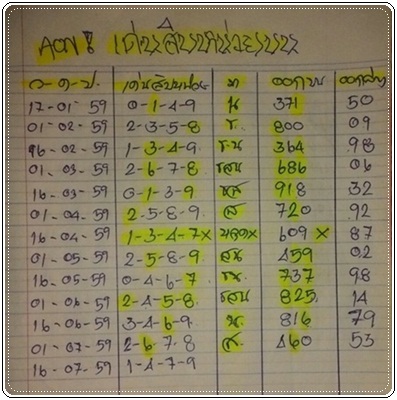 เด่นสิบหน่วยบน
ว-ด-ป. เด่นสิบหน่วย ออกบน ออกล่าง
17-01-59 0-1-4-9 น 371 50
01-02-59 2-3-5-8 ร. 800 09
16-02-59 1-3-4-9 ร.น 364 98
01-03-59 2-6-7-8 รสน 686 06
16-03-59 0-1-3-9 รส 918 32
01-04-59 2-5-8-9 ส 720 92
16-04-59 1-3-4-7x 609 x 87
01-05-59 2-5-8-9 สน 459 02
16-05-59 0-4-6-7 รน. 737 98
01-06-59 2-4-5-8 รสน 825 14
16-06-59 3-4-6-9 น. 816 79
01-07-59 2-6-7-8 ส. 460 53
16-07-59 1-4-7-9